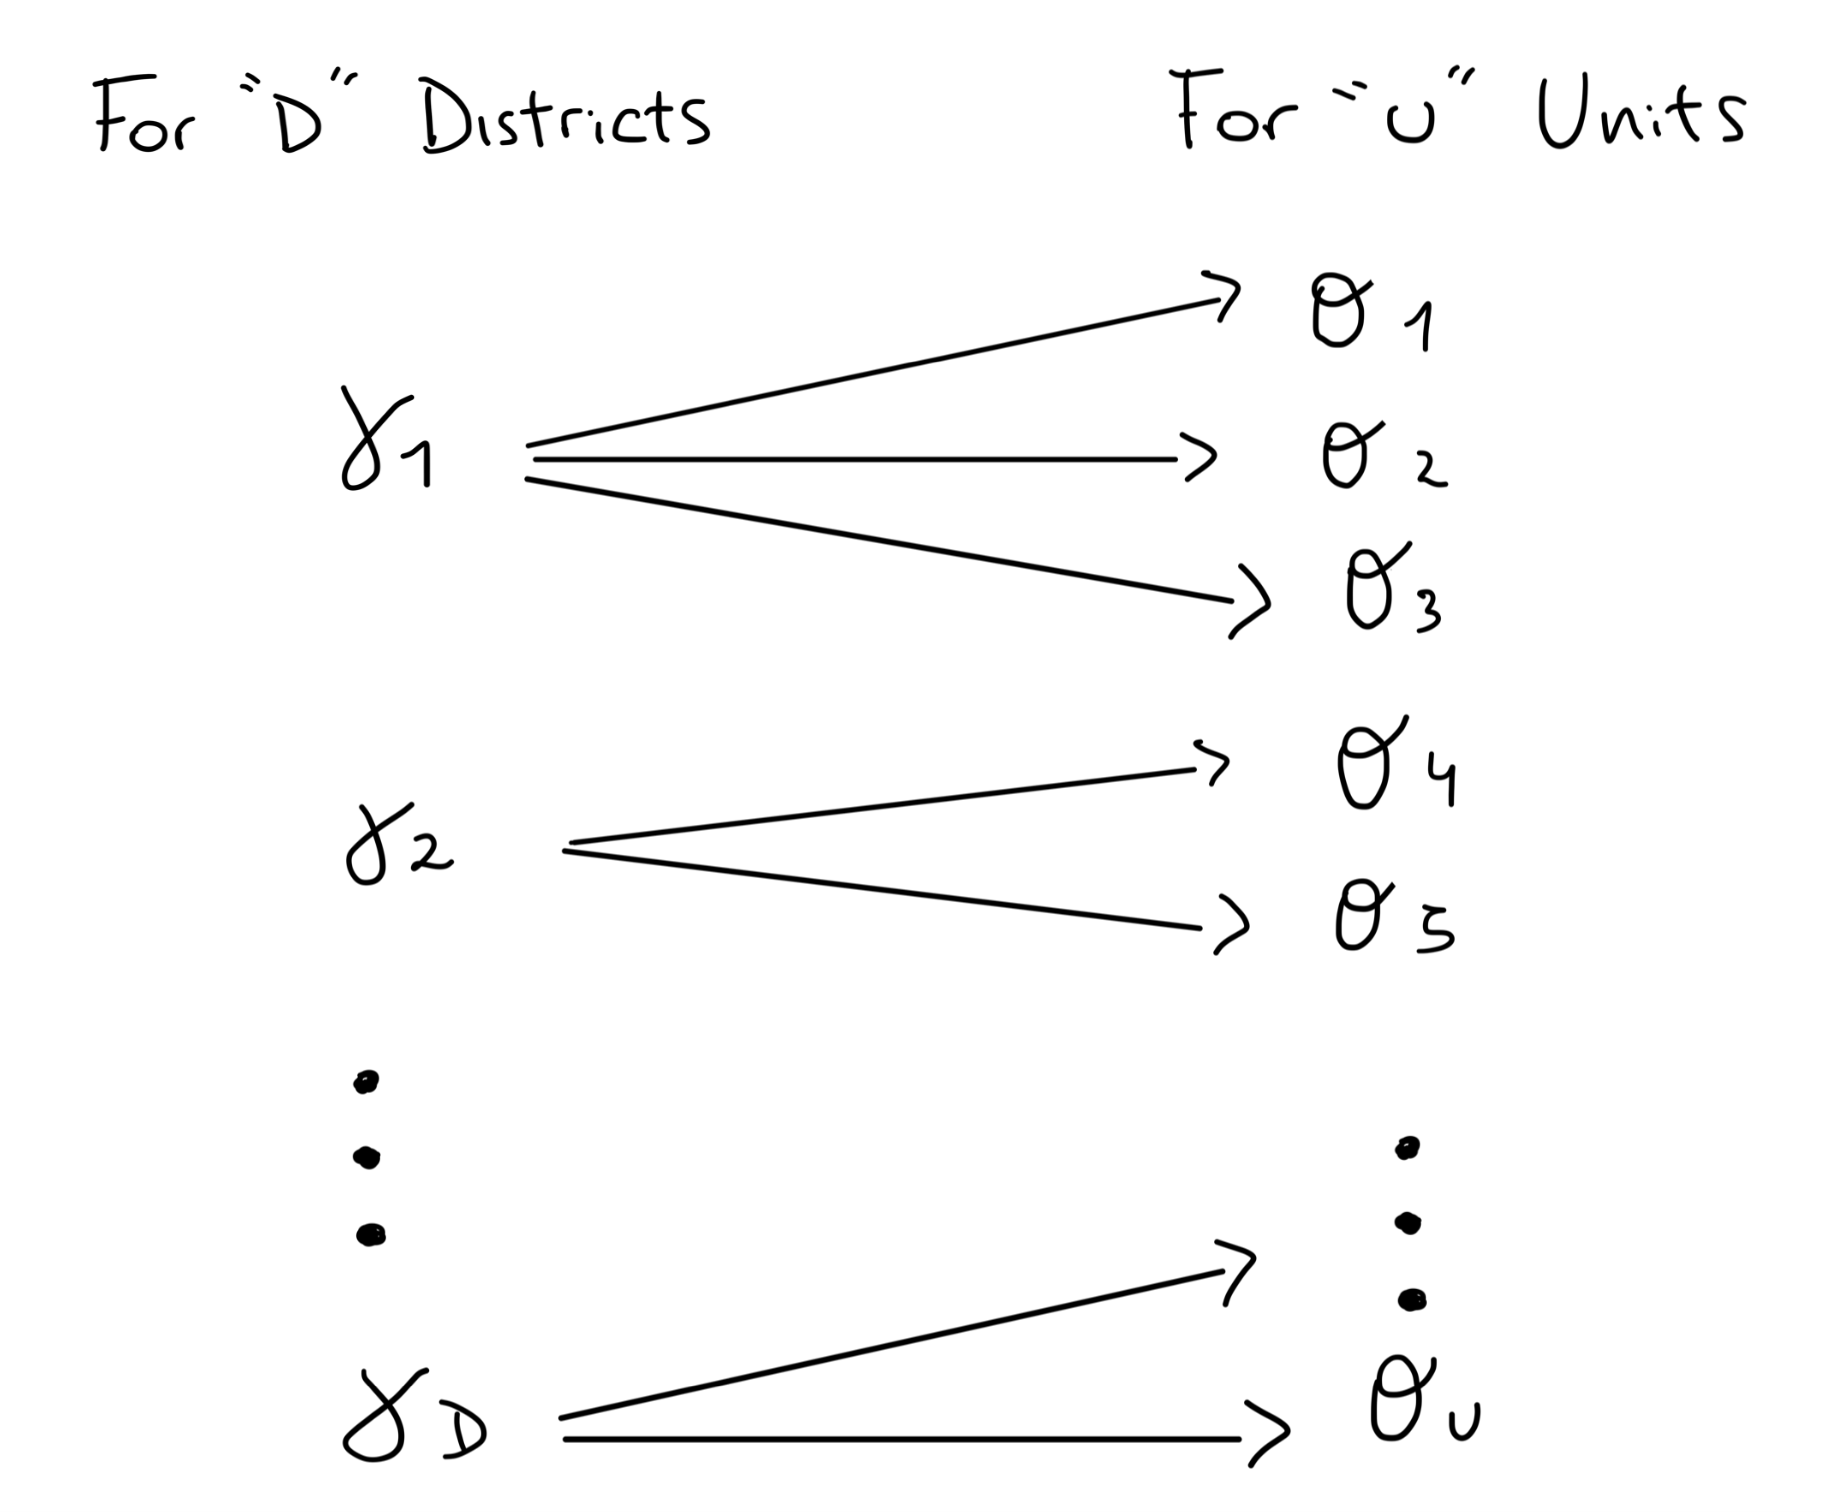 For "D" Districts
For "U" Units
γ1
θ1
θ2
θ3
γ2
θ4
θ5
γD
θU